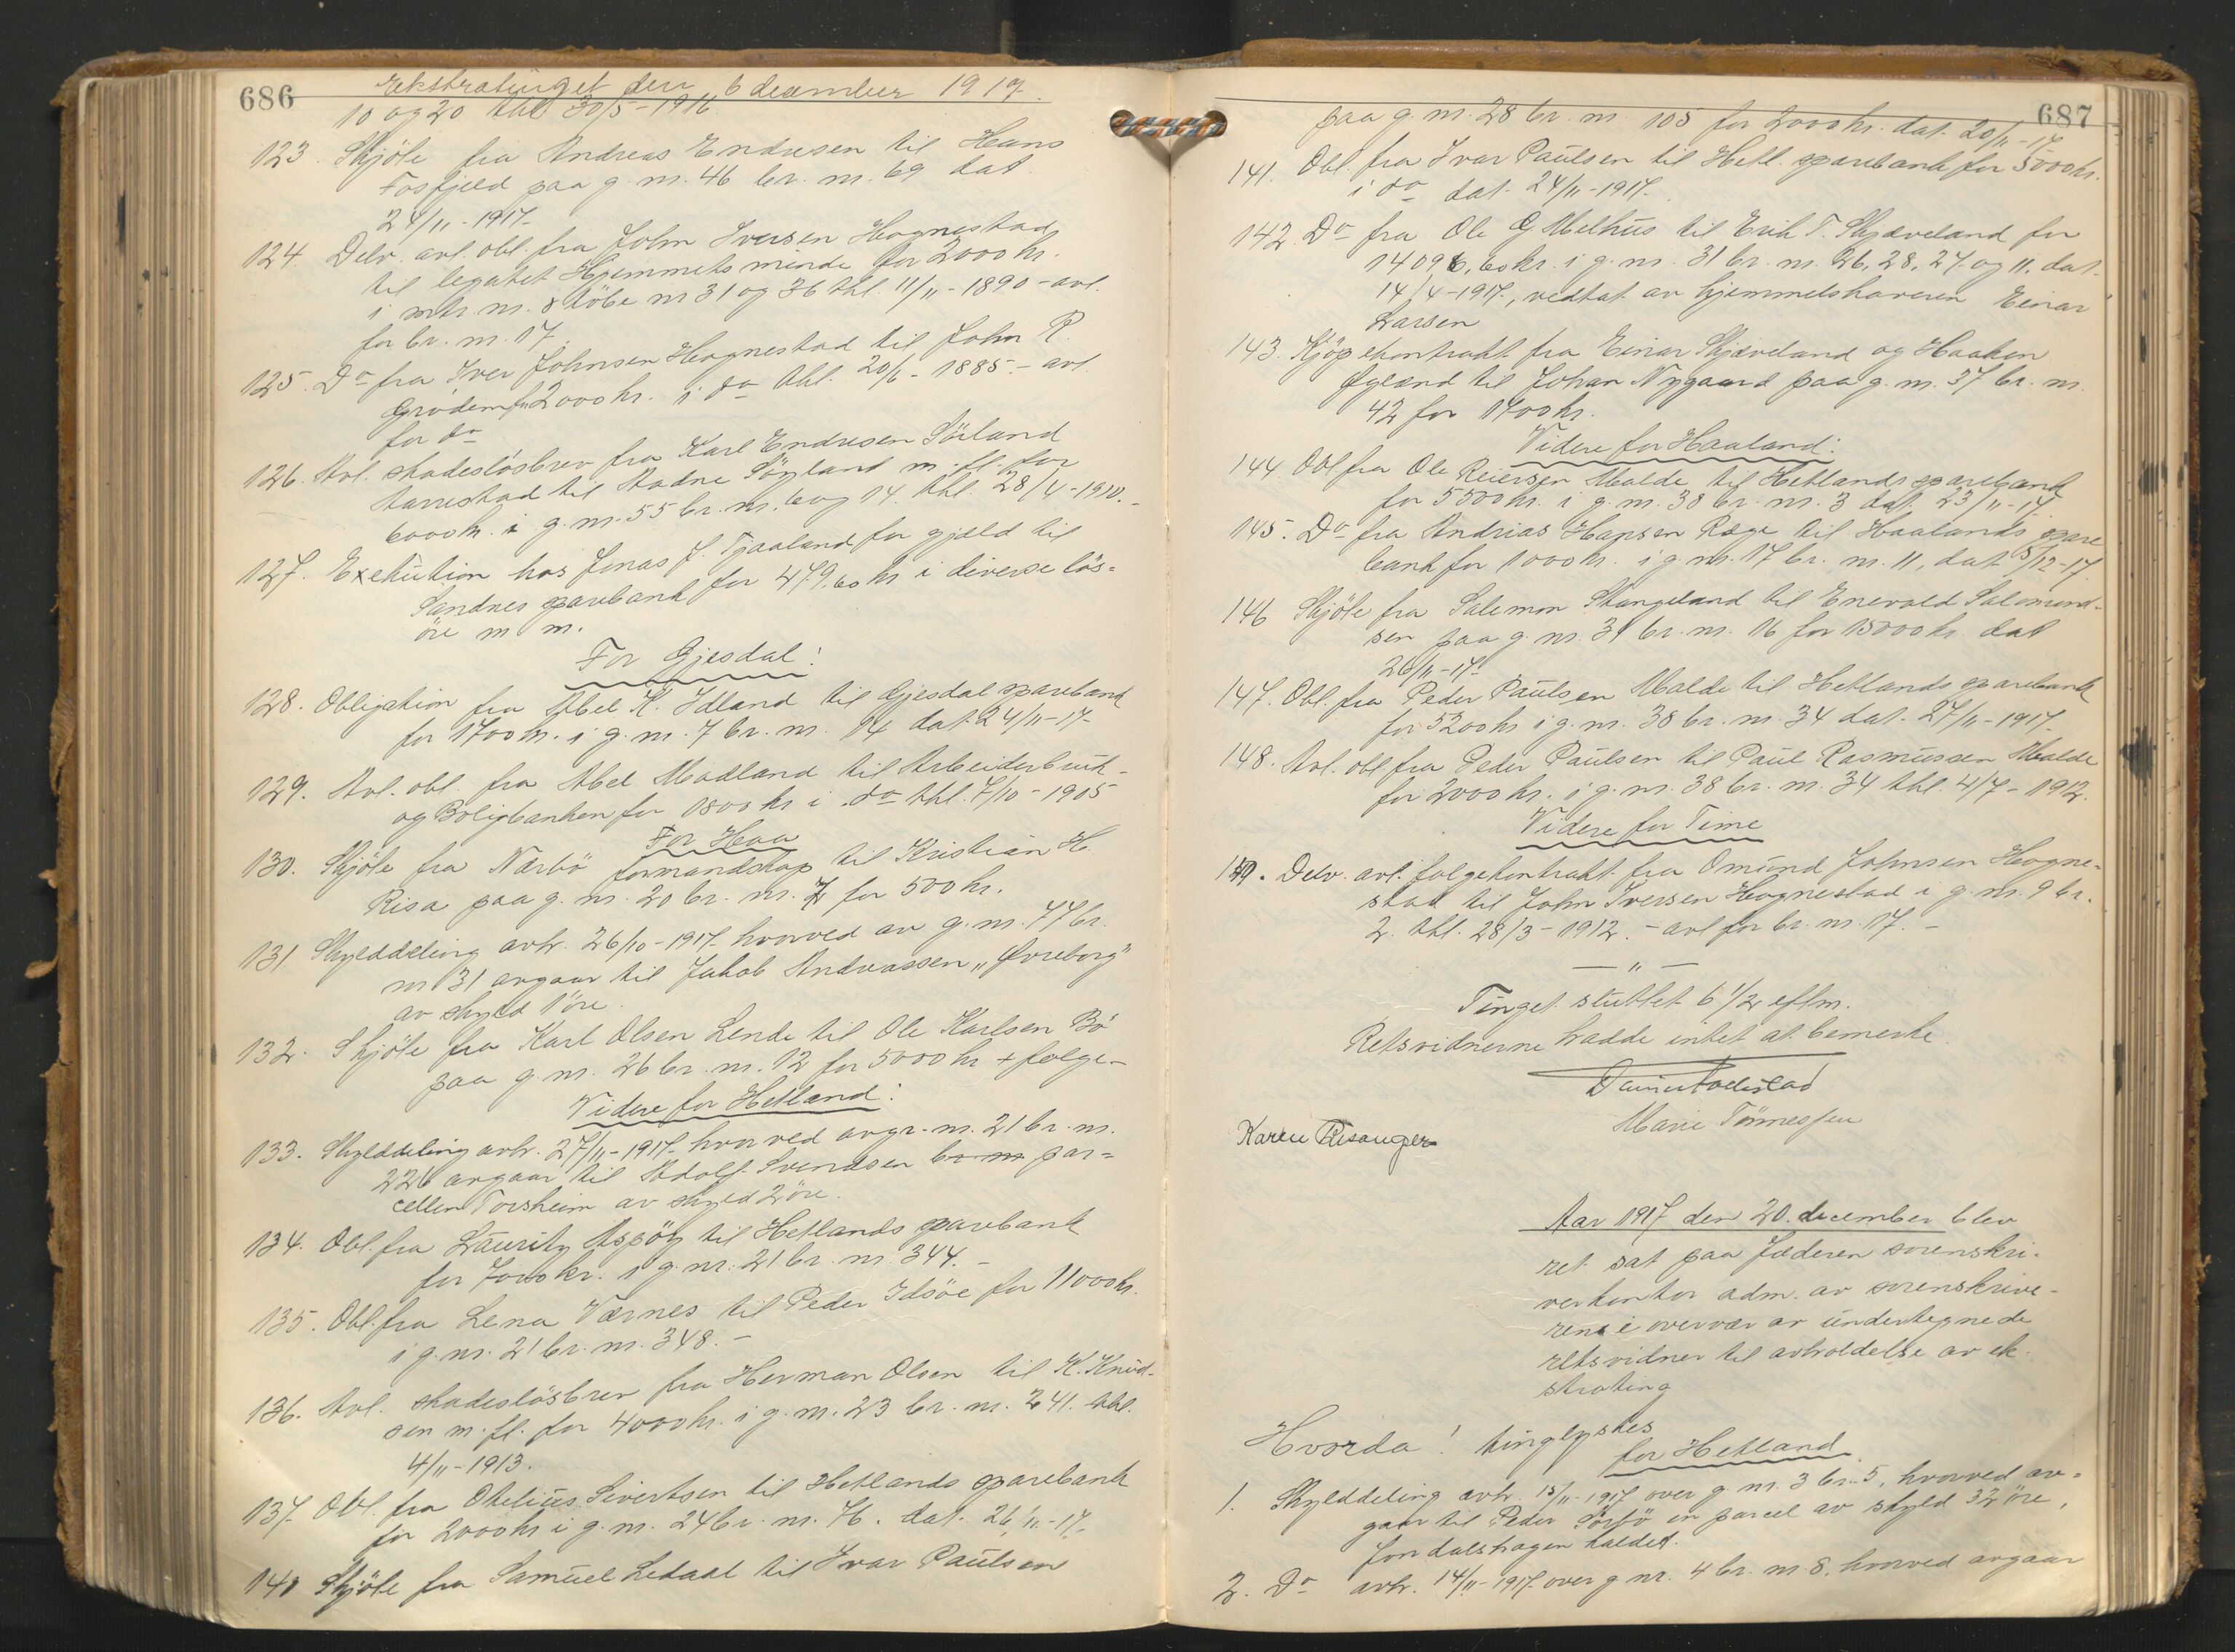 686
ekstratinget den 6 december 1917.
10 og 20 thl 30/5-1916
123. Skjöte fra Andreas Endresen til Hans
Fosfjeld paa g. nr. 46 br. nr. 69 dat.
24/11-1917-
124 Delv. avl. obl. fra John Iversen Hognestad
til legatet Hjemmets minde for 2000 kr.
i mtr. nr. 8 löbe nr 31 og 36 thl. 11/11-1890-avl.
for br. nr. 17.
125. Do fra Iver Johnsen Hognestad til John R
Grödem for 2000 kr. i do thl. 20/6-1885.- avl.
for do
126. Avl. skadeslösbrev fra Karl Endresen Sörland
Aarrestad til Aadne Söyland m. fl. for
6000 kr. i g. nr. 55 br. nr. 6 og 14. thl. 28/4-1910.-
127. Exekution hos Jonas J. Tjaaland for gjæld til
Sandnes sparebank for 479,60 kr i diverse lös=
öre m m.
For Gjesdal!
128. Obligation fra Abel K. Idland til Gjesdal sparebank
for 1700 kr. i g. nr. 7 br. nr. 14 dat. 24/11-17-
129. Avl. obl. fra Abel Madland til Arbeiderbruk-
og Boligbanken for 1800 kr i do thl. 7/10-1905
For Haa
130. Skjöte fra Nærbö formandskap til Kristian H.
Risa paa g. nr. 20 br. nr. 7 for 500 kr.
131 Skylddeling avh. 26/10-1917 hvorved av g. nr. 77 br.
nr 31 avgaar til Jakob Andreassen „Övreborg"
av skyld 1 öre.
132. Skjöte fra Karl Olsen Lende til Ole Karlsen Bö
paa g. nr. 26 br. nr. 12 for 5000 kr + følge-
Videre for Hetland:
133. Skylddeling avh. 27/11-1917- hvorved avgr. nr. 21 br. nr.
226 avgaar til Adolf Svendsen br nr par=
cellen Torsheim av skyld 2 öre.
134. Obl. fra Lauritz Aspöy til Hetlands sparebank
for 7000 kr. i g. nr. 21 br. nr. 344.-
135. Obl. fra Lena Værnes til Peder Idsöe for 11000 kr.
i g. nr. 21 br. nr. 348.-
136. Avl. skadeslösbrev fra Herman Olsen til K. Knud-
sen m. fl. for 4000 kr. i g. nr. 23 br. nr. 241. thl.
4/11-1913.
137. Obl. fra Obelius Sivertsen til Hetlands sparebank
for 2000 kr i g. nr. 24 br. nr. 76. dat. 26/11-17-
140 Skjöte fra Samuel Ledaal til Ivar Paulsen
687
paa g. nr. 28 br. nr. 105 for 2000 kr. dat. 20/11-17
141. Obl. fra Ivar Paulsen til Hetl. sparebank for 5000 kr.
i do dat. 24/11-1917.
142. Do fra Ole G Melhus til Erik T. Skjæveland for
14096,60 kr. i g. nr. 31 br. nr. 26, 28, 27 og 11, dat.
14/4-1917, vedtat av hjemmelshaveren Einar
Larsen
143. Kjöpekontrakt fra Einar Skjæveland og Haakon
Öyland til Johan Nygaard paa g. nr. 37 br. nr.
42 for 1700 kr.
Videre for Haaland:
144. Obl. fra Ole Reiersen Malde til Hetlands sparebank
for 5500 kr. i g. nr. 38 br. nr. 3 dat. 23/11-17.
145. Do fra Andrias Hansen Ræge til Haalands spare
bank for 1000 kr. i g. nr. 17 br. nr. 11, dat 5/12-17.
146 Skjöte fra Salemon Stangeland til Enevald Salomond-
sen paa g. nr. 31 br. nr. 16 for 15000 kr. dat
26/11-17.
147. Obl. fra Peder Paulsen Malde til Hetlands sparebank
for 5200 kr i g. nr. 38 br. nr. 34 dat. 27/11-1917.
148. Avl. obl fra Peder Paulsen til Paul Rasmussen Malde
for 2000 kr. i g. nr. 38 br. nr. 34 thl. 4/7-1912.
Videre for Time
149. Delv. avl. følgekontrakt fra Omund Johnsen Hogne=
stad til John Iversen Hognestad i g. nr. 9 br.
2. thl. 28/3-1912.- avl for br. nr. 17.-
— " —
Tinget sluttet 6 1/2 eftm.
Retsvidnerne hadde intet at bemerke.
Marie Tönnessen
Karen Risanger
Aar 1917 den 20. december blev
ret sat paa Jæderen sorenskri-
verkontor adm. av sorenskrive-
rens i overvær av undertegnede
retsvidner til avholdelse av ek-
strating
Hvorda! tinglystes
for Hetland.
1. Skylddeling avh. 13/11-1917 over g nr. 3 br. 5, hvorved av=
gaar til Peder Sörbö en parcel av skyld 32 öre,
Jondalshagen kaldet.
2. Do avh. 14/11-1917 over g nr. 4 br. nr 8, hvorved avgaar